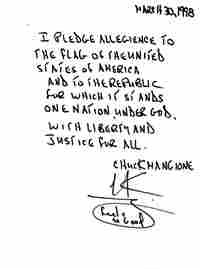 MARCH 30, 1998
I PLEDGE ALLEGIENCE TO
THE FLAG OF THE UNITED
STATES OF AMERICA
AND TO THE REPUBLIC
FOR WHICH IT STANDS
ONE NATION UNDER GOD.
WITH LIBERTY AND
JUSTICE FOR ALL.
CHUCK MANGIONE